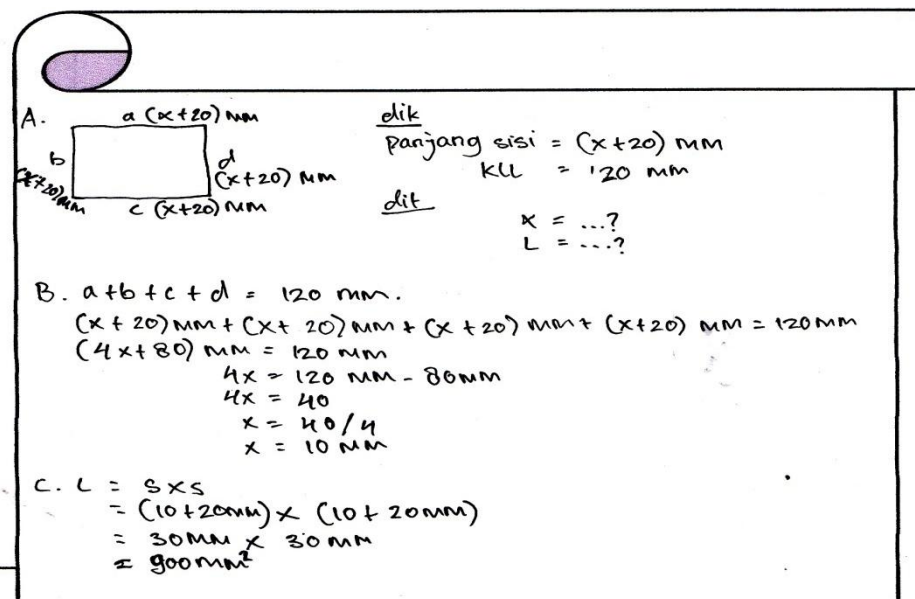 A.
a (x+20) mm
b
(x+20) mm
d
(x+20) mm
c (x+20) mm
dik
panjang sisi = (x+20) mm
kll = 120 mm
dit
x = ...?
L = ...?
B. a+b+c+d = 120 mm.
(x + 20) mm + (x + 20) mm + (x + 20) mm + (x+20) mm = 120 mm
(4x+80) mm = 120 mm
4x = 120 mm - 80mm
4x = 40
x = 40/4
x = 10 mm
C. L = s x s
= (10 + 20mm) x (10 + 20mm)
= 30 mm x 30 mm
= 900 mm²